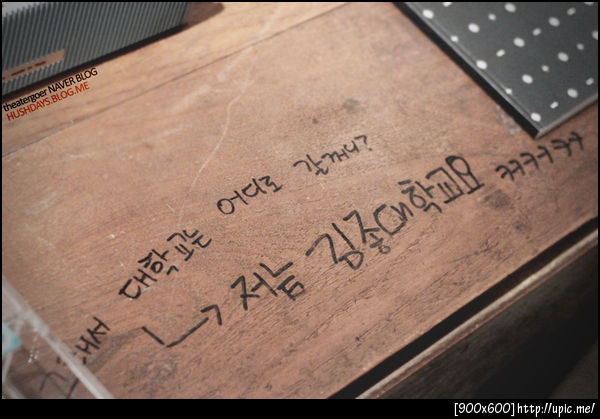 theatergoer NAVER BLOG
HUSHDAYS.BLOG.ME
대학교는 어디로 갈꺼니?
저는 김종대학교요 ㅋㅋㅋㅋㅋ
[900x600]http://upic.me/